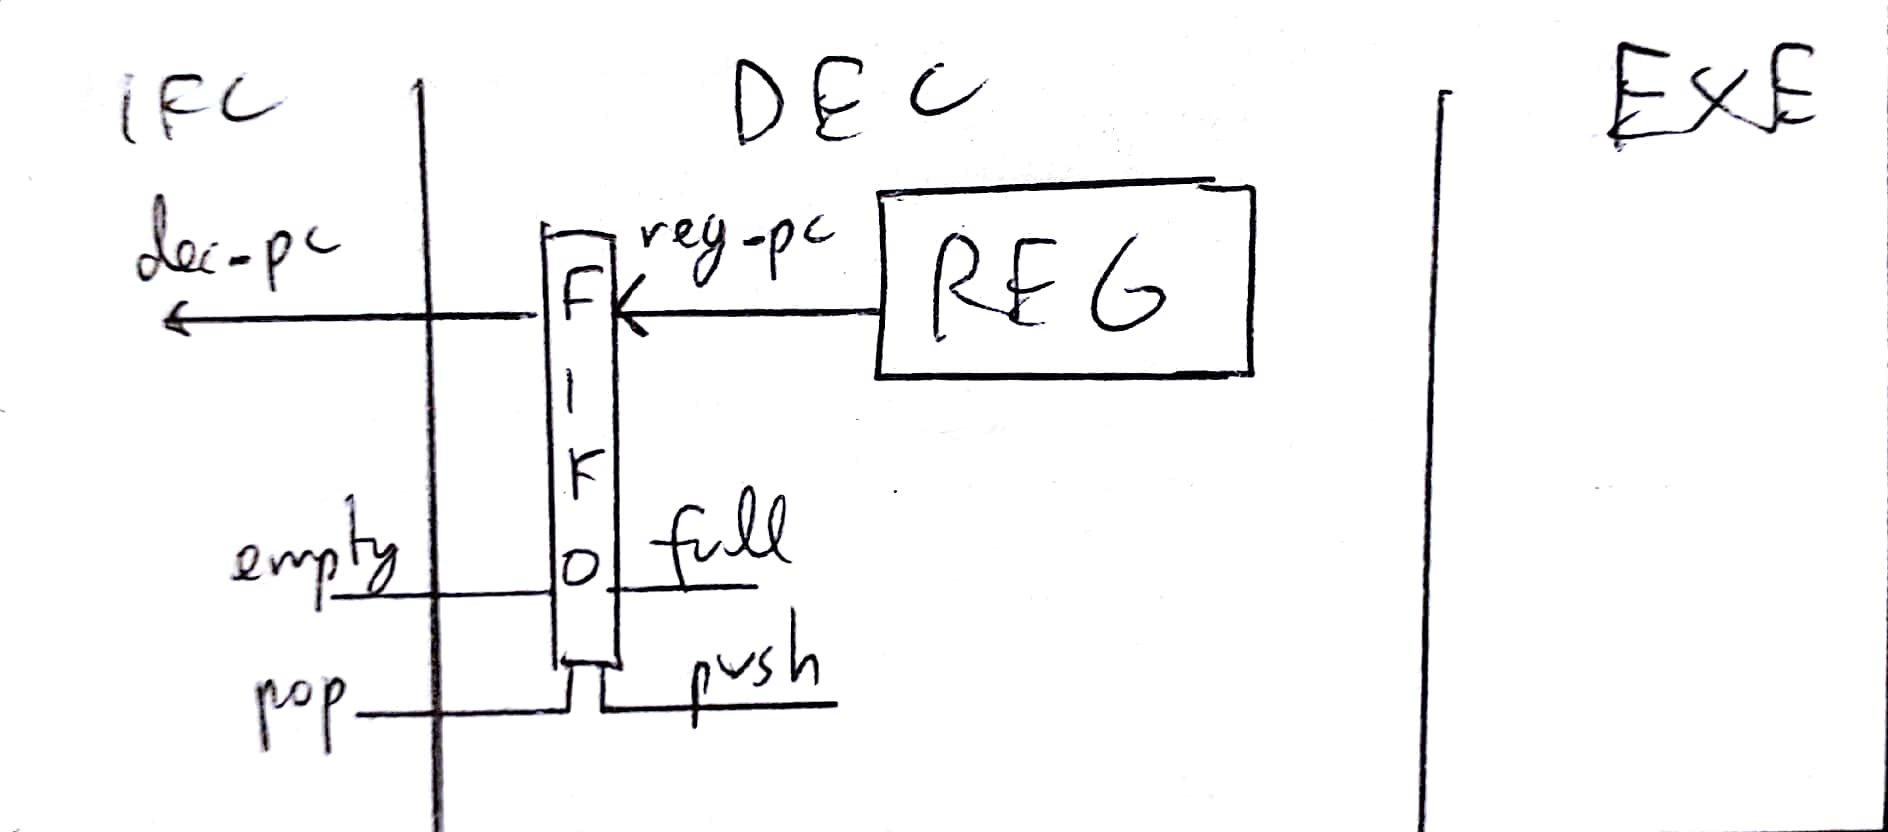 IFC DEC EXE
dec-pc reg-pc REG
F
I
F
O
empty full
pop push